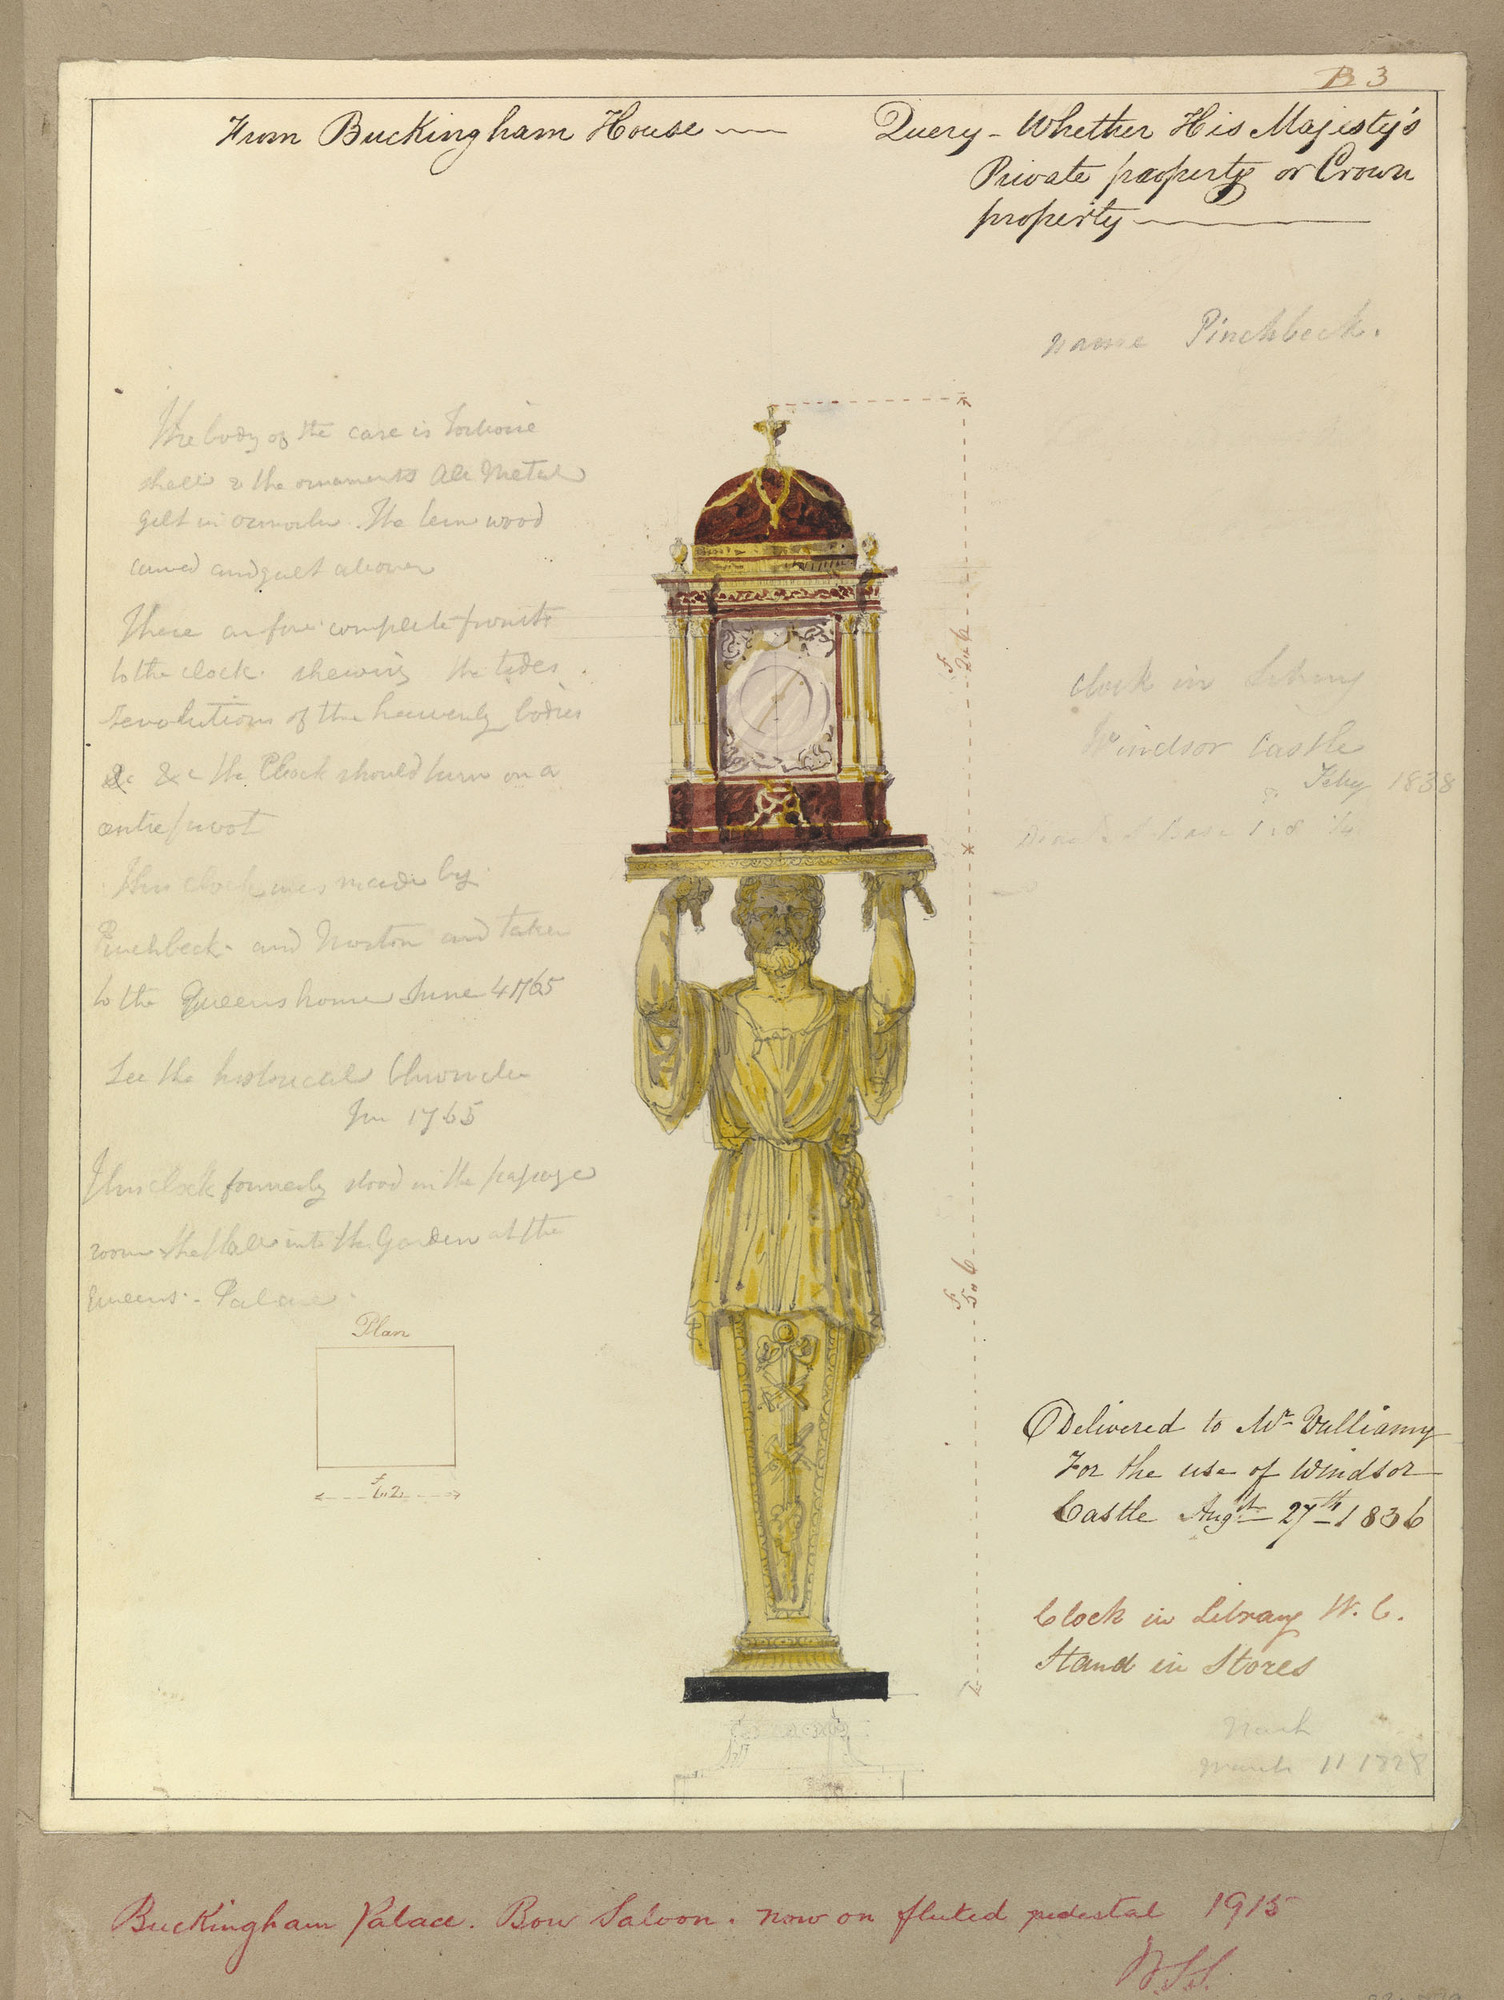 B 3
From Buckingham House
Query - Whether His Majesty's
Private property or Crown
property
name Pinchbeck.
The body of the case is Tortoise
shell & the ornaments are Metal
gilt in ormolu. The term wood
carved and gilt all over
There are four complete fronts
to the clock. shewing the tides.
revolutions of the heavenly bodies
&c &c the Clock should turn on a
centre pivot
This clock was made by
Pinchbeck. and Norton and taken
to the Queens house June 4 1765
See the historical Chronicle
for 1765
This clock formerly stood in the passage
room the Hall into the Garden at the
Queens. Palace.
F 2 " 6
clock in Library
Windsor Castle
Feby 1838
Base
F 5 " 6
Plan
F 1 " 2
Delivered to Mr Vulliamy
For the use of Windsor
Castle Augst 27th 1836
Clock in Library W. C.
Stand in Stores
March 11 1828
Buckingham Palace. Bow Saloon. now on fluted pedestal 1915